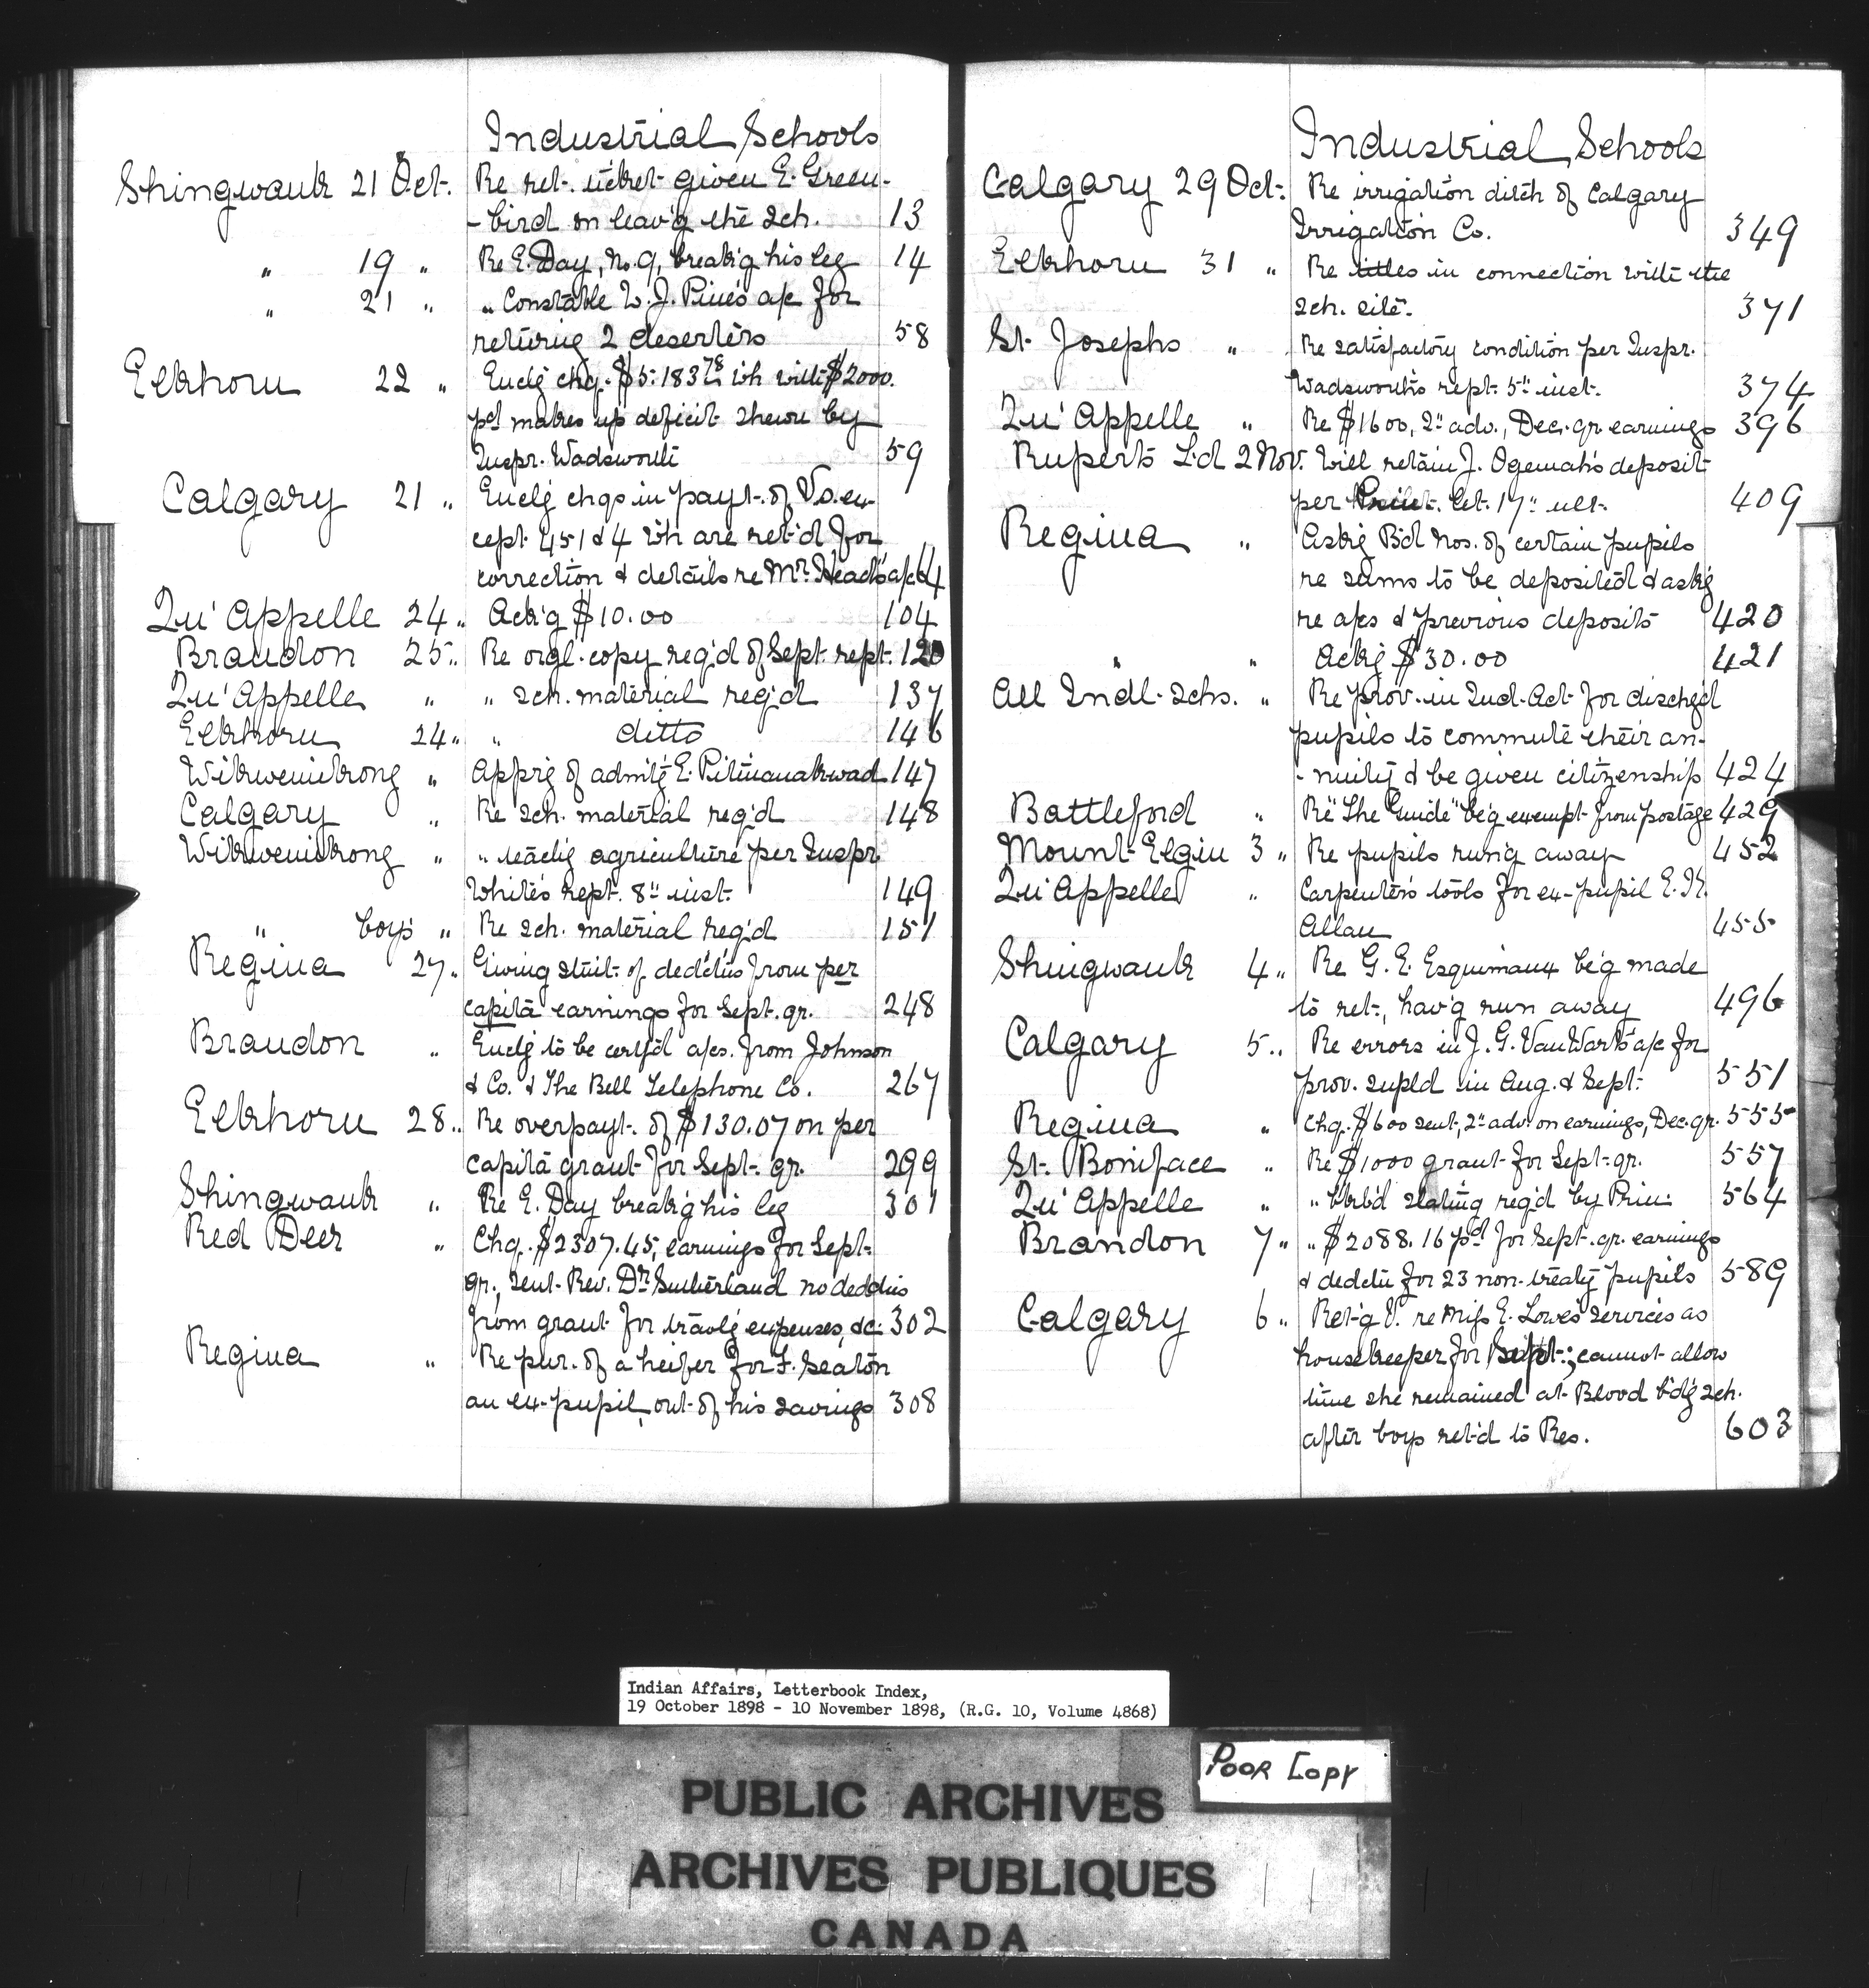 Industrial Schools
Shingwauk 21 Oct. Re ret. ticket given E. Green-
-bird on leav'g the sch. 13
" 19 " Re E. Day, No. 9, break'g his leg 14
" 21 " " Constable W. J. Pine's a/c for
returing 2 deserters 58
Elkhorn 22 " Encl'g chq. $5,183.78 wh with $2000.
pd makes up deficit shewn by
Inspr. Wadsworth 59
Calgary 21 " Encl'g chqs in payt. of Vo. ex-
cept 451 & 4 wh are ret'd for
correction & details re Mr. Head's a/c 64
Qu'Appelle 24 " Ack'g $10.00 104
Brandon 25 " Re orgl. copy req'd of Sept. rept. 120
Qu'Appelle " " sch. material req'd 137
Elkhorn 24 " " ditto 146
Wikwemikong " Appr'g of admit'g E. Pitwanakwad 147
Calgary " Re sch. material req'd 148
Wikwemikong " " teach'g agriculture per Inspr.
White's rept. 8" inst. 149
" boys " Re sch. material req'd 151
Regina 27 " Giving stmt. of deddctns from per
capita earnings for Sept. qr. 248
Brandon " Encl'g to be certf'd a/cs. from Johnson
& Co. & The Bell Telephone Co. 267
Elkhorn 28 " Re overpayt. of $130.07 on per
capita grant for Sept. qr. 299
Shingwauk " Re E. Day break'g his leg 301
Red Deer " Chq. $2307.45, earnings for Sept.
qr., sent Rev. Dr. Sutherland no deddns
from grant for travl'g expenses, &c. 302
Regina " Re pur. of a heifer for F. Seaton
an ex-pupil, out of his savings 308
Industrial Schools
Calgary 29 Oct. Re irrigation ditch of Calgary
Irrigation Co. 349
Elkhorn 31 " Re titles in connection with the
sch. site. 371
St. Josephs " Re satisfactory condition per Inspr.
Wadsworth's rept. 5" inst. 374
Qu'Appelle " Re $1600, 2" adv., Dec. qr. earnings 396
Ruperts L'd 2 Nov. Will retain J. Ogemah's deposit
per let. 17" ult. 409
Regina " Ask'g B'd Nos. of certain pupils
re sums to be deposited & ask'g
re a/cs & previous deposits 420
" " Ack'g $30.00 421
All Indl. Schs. " Re prov. in Ind. Act for disch'g'd
pupils to commute their an-
-nuity & be given citizenship 424
Battleford " Re "The Guide" be'g exempt from postage 429
Mount Elgin 3 " Re pupils run'g away 452
Qu'Appelle " Carpenter's tools for ex-pupil E. K.
Allan 455
Shingwauk 4 " Re G. E. Esquimaux be'g made
to ret., hav'g run away 496
Calgary 5 " Re errors in J. G. VanWart's a/c for
prov. supld in Aug. & Sept. 551
Regina " Chq. $600 sent, 2" adv. on earnings, Dec. qr. 555
St. Boniface " Re $1000 grant for Sept. qr. 557
Qu'Appelle " " bkb'd slating req'd by Prin. 564
Brandon 7 " " $2088.16 pd for Sept. qr. earnings
& dedctn for 23 non-treaty pupils 589
Calgary 6 " Ret'g V. re Miss E. Lowe's services as
housekeeper for Sept.; cannot allow
time she remained at Blood b'd'g sch.
after boys ret'd to Res. 603
Indian Affairs, Letterbook Index,
19 October 1898 - 10 November 1898, (R.G. 10, Volume 4868)
POOR COPY
PUBLIC ARCHIVES
ARCHIVES PUBLIQUES
CANADA